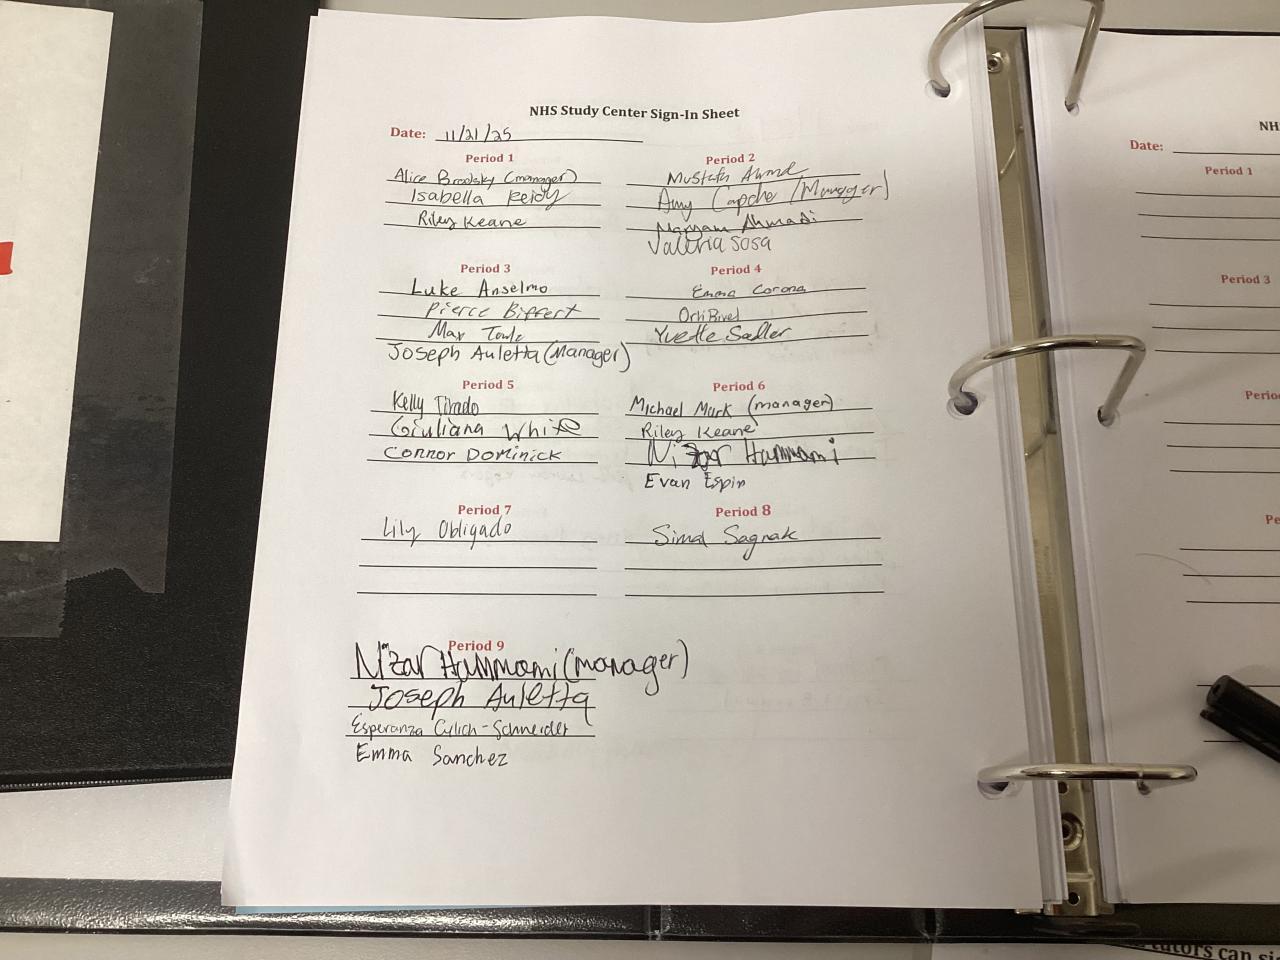 NHS Study Center Sign-In Sheet
Date: 11/21/25
Period 1
Alice Brodsky (manager)
Isabella Reidy
Riley Keane
Period 2
Mustafa
Amy Capche (Manager)
Maryam Ahmadi
Valeria Sosa
Period 3
Luke Anselmo
Pierce Biffert
Max Towle
Joseph Auletta (Manager)
Period 4
Emma Corona
Yvette Sadler
Period 5
Kelly Tirado
Giuliana White
Connor Dominick
Period 6
Michael Mark (manager)
Riley Keane
Nizar Hammami
Evan Espin
Period 7
Lily Obligado
Period 8
Simal Sagnak
Period 9
Nizar Hammami (manager)
Joseph Auletta
Esperanza Cylich-Schneider
Emma Sanchez
NH
Date:
Period 1
Period 3
Perio
Pe
tutors can si